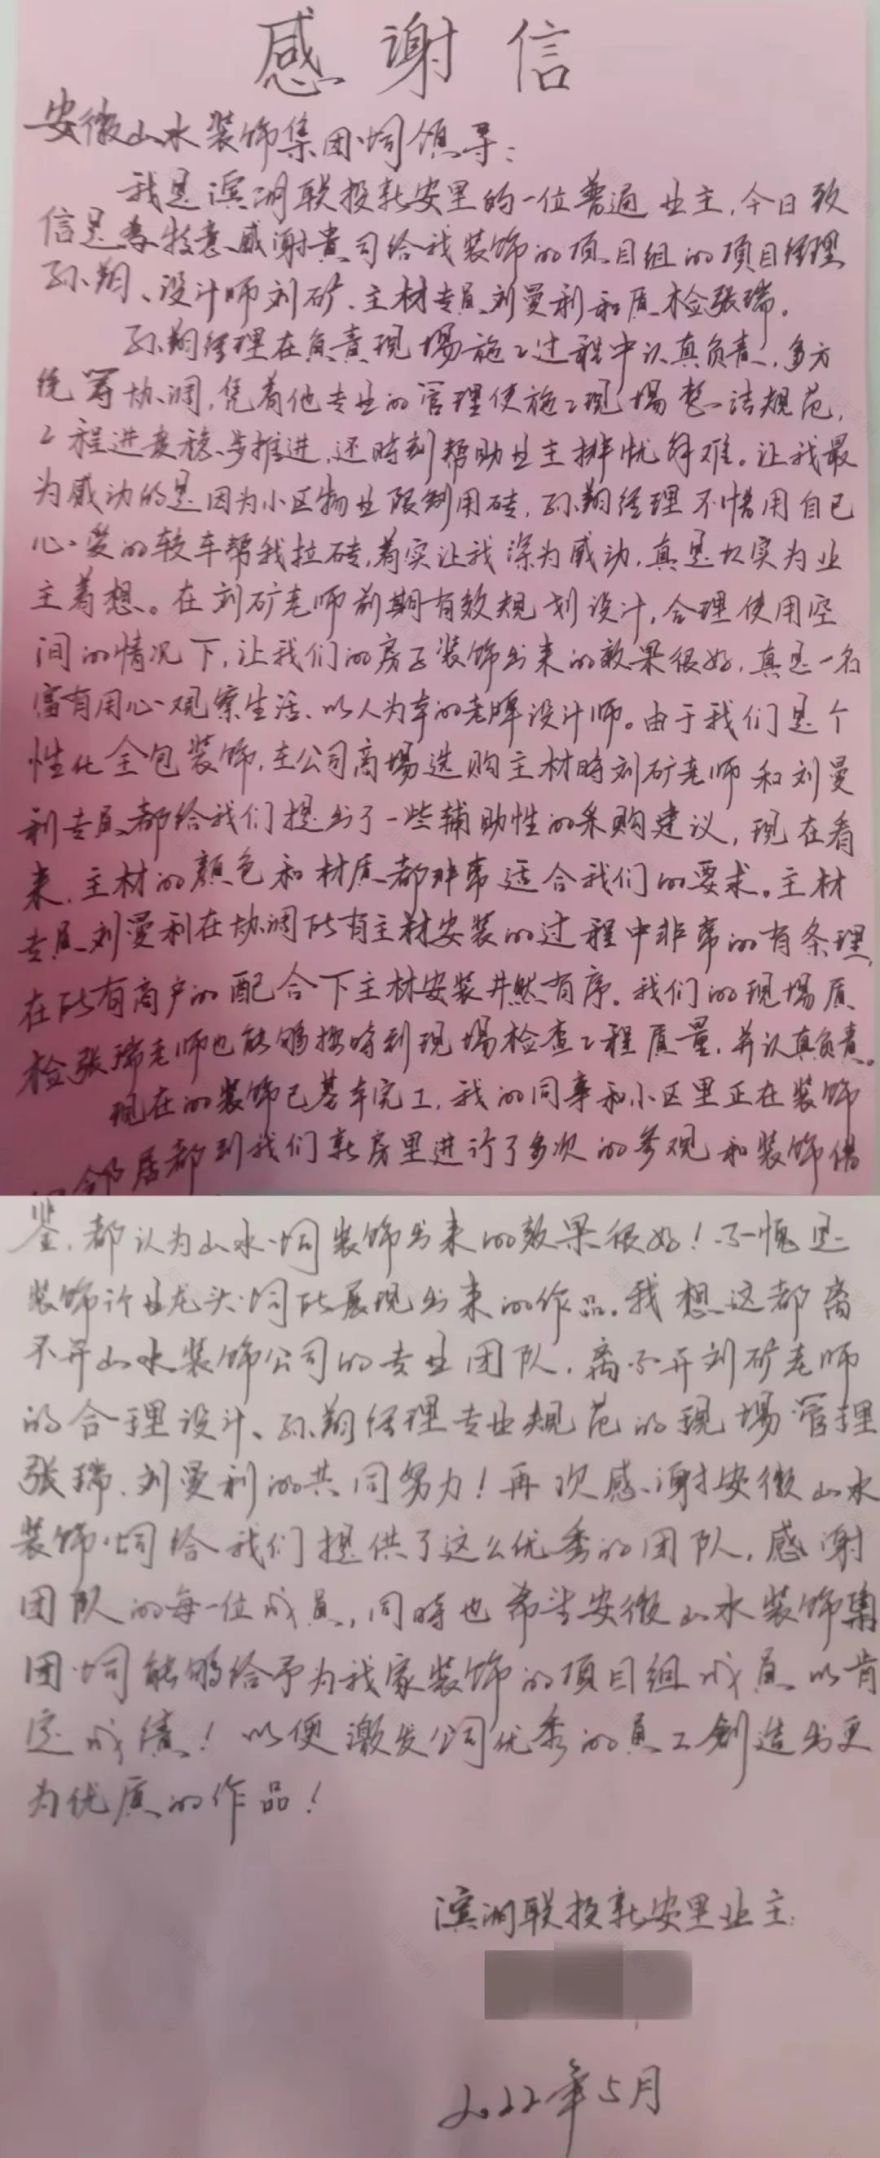 感谢信
安徽山水装饰集团公司领导：
我是滨湖联投新安里的一位普通业主，今日致
信是特意感谢贵司给我装饰的项目组的項目经理
孙翔、设计师刘矿、主材专员刘曼利和质检张瑞。
孙翔经理在负责现場施工过程中认真负责，多方
统筹协调，凭着他专业的管理使施工现場整洁规范，
工程进度稳步推进，还時刻帮助业主排忧解难。让我最
为感动的是因为小区物业限制用砖，孙翔经理不惜用自己
心爱的轿车帮我拉砖，着实让我深为感动，真是切实为业
主着想。在刘矿老师前期有效规划设计，合理使用空
间的情况下，让我们的房子装饰出来的效果很好，真是一名
富有用心观察生活、以人为本的老牌设计师。由于我们是个
性化全包装饰，在公司商場选购主材時刘矿老师和刘曼
利专员都给我们提出了一些辅助性的采购建议，现在看
来，主材的顏色和材质都非常适合我们的要求。主材
专员刘曼利在协调所有主材安装的过程中非常的有条理，
在所有商户的配合下主材安装井然有序。我们的现場质
检张瑞老师也能够按時到现場检查工程质量，并认真负责。
现在的装饰已基本完工，我的同事和小区里正在装饰
的邻居都到我们新房里进行了多次的参观和装饰借
鉴，都认为山水公司装饰出来的效果很好！不愧是
装饰行业龙头公司所展现出来的作品。我想这都离
不开山水装饰公司的专业团队，离不开刘矿老师
的合理设计、孙翔经理专业规范的现場管理
张瑞、刘曼利的共同努力！再次感谢安徽山水
装饰公司给我们提供了这么优秀的团队，感谢
团队的每一位成员，同時也希望安徽山水装饰集
团公司能够给予为我家装饰的項目组成员以肯
定成绩！以便激发公司优秀的员工創造出更
为优质的作品！
滨湖联投新安里业主：
2022年5月